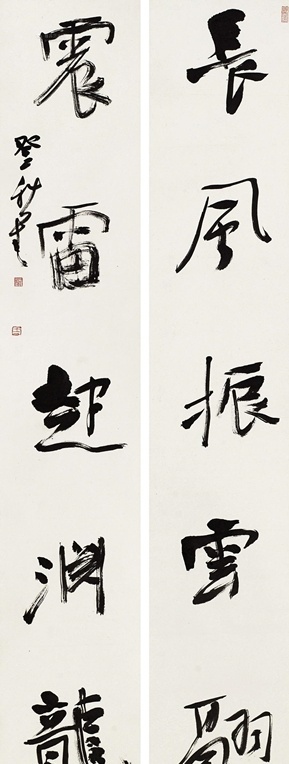 長風振雲翮
震雷起淵龍